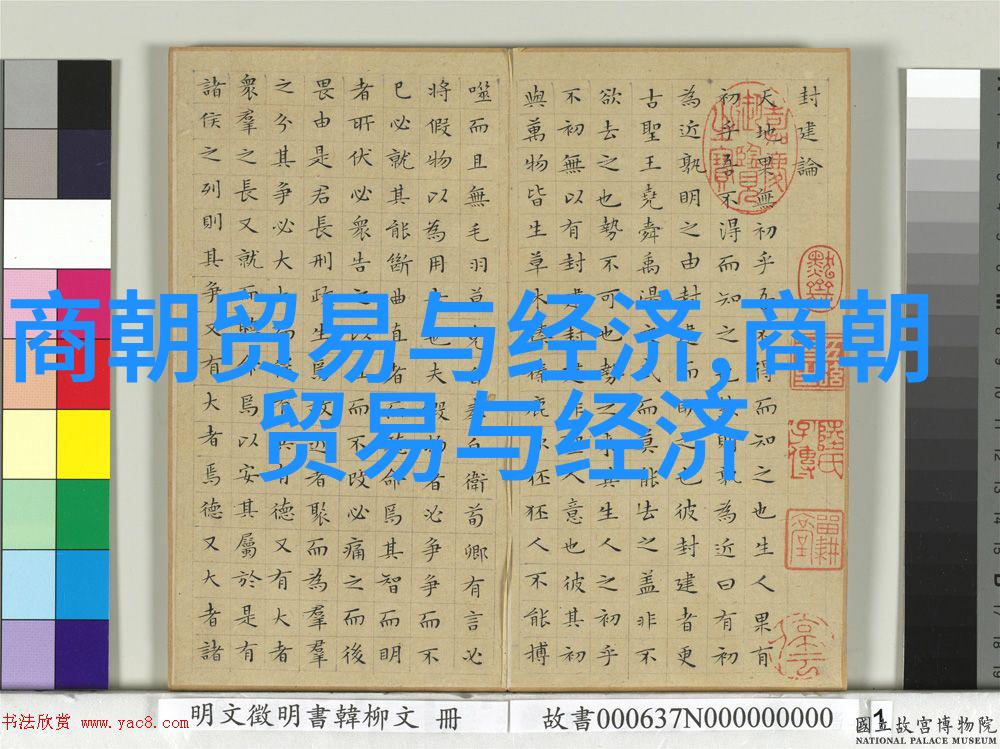 封建論
天地果無初乎吾不得而知之也生人果有
初乎吾不得而知之也然則孰為近曰有初
為近孰明之由封建而明之也彼封建者更
古聖王堯舜禹湯文武而莫能去之蓋非不
欲去之也勢不可也勢之來其生人之初乎
不初無以有封建封建非聖人意也彼其初
與萬物皆生草木榛榛鹿豕狉狉人不能搏
噬而且無毛羽莫克自奉自衛荀卿有言必
將假物以為用者也夫假物者必爭爭而不
已必就其能斷曲直者而聽命焉其智而明
者所伏必眾告之以直而不改必痛之而後
畏由是君長刑政生焉故近者聚而為羣羣
之分其爭必大大而後有兵有德又有大者
眾羣之長又就而聽命焉以安其屬於是有
諸侯之列則其爭又有大者焉德又大者諸
商朝贸易与经济,商朝
贸易与经济
书法欣赏 www.yac8.com
明文徵明書韓柳文 冊
故書000637N000000000
1
國立故宮博物院
NATIONAL PALACE MUSEUM